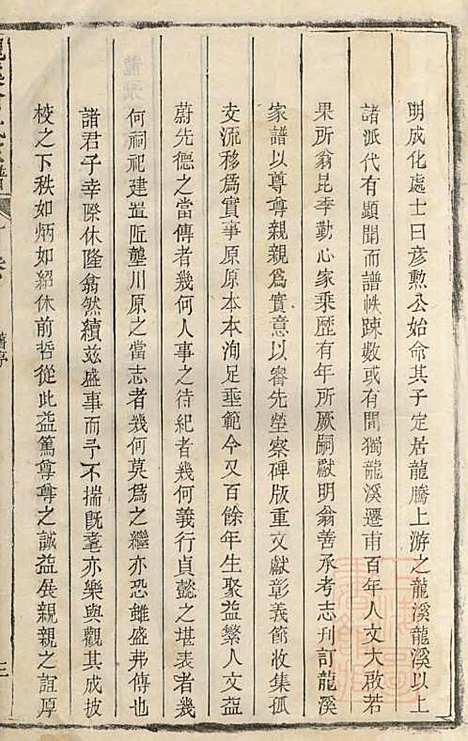 明成化處士曰彥勲公始命其子定居龍騰上游之龍溪龍溪以上
諸派代有顯聞而譜帙踈數或有間獨龍溪遷甫百年人文大啟若
果所翁昆季勤心家乘歷有年所厥嗣獻明翁善承考志刊訂龍溪
家譜以尊尊親親爲實意以審先塋察碑版重文獻彰義節收集孤
支流移爲實事原原本本洵足垂範今又百餘年生聚益繁人文益
蔚先德之當傳者幾何人事之待紀者幾何義行貞懿之堪表者幾
何祠祀建置阡壟川原之當志者幾何莫爲之繼亦恐雖盛弗傳也
諸君子幸際休隆翕然續兹盛事而予不揣旣耄亦樂與觀其成披
校之下秩如炳如紹休前哲從此益篤尊尊之誠益展親親之誼厚